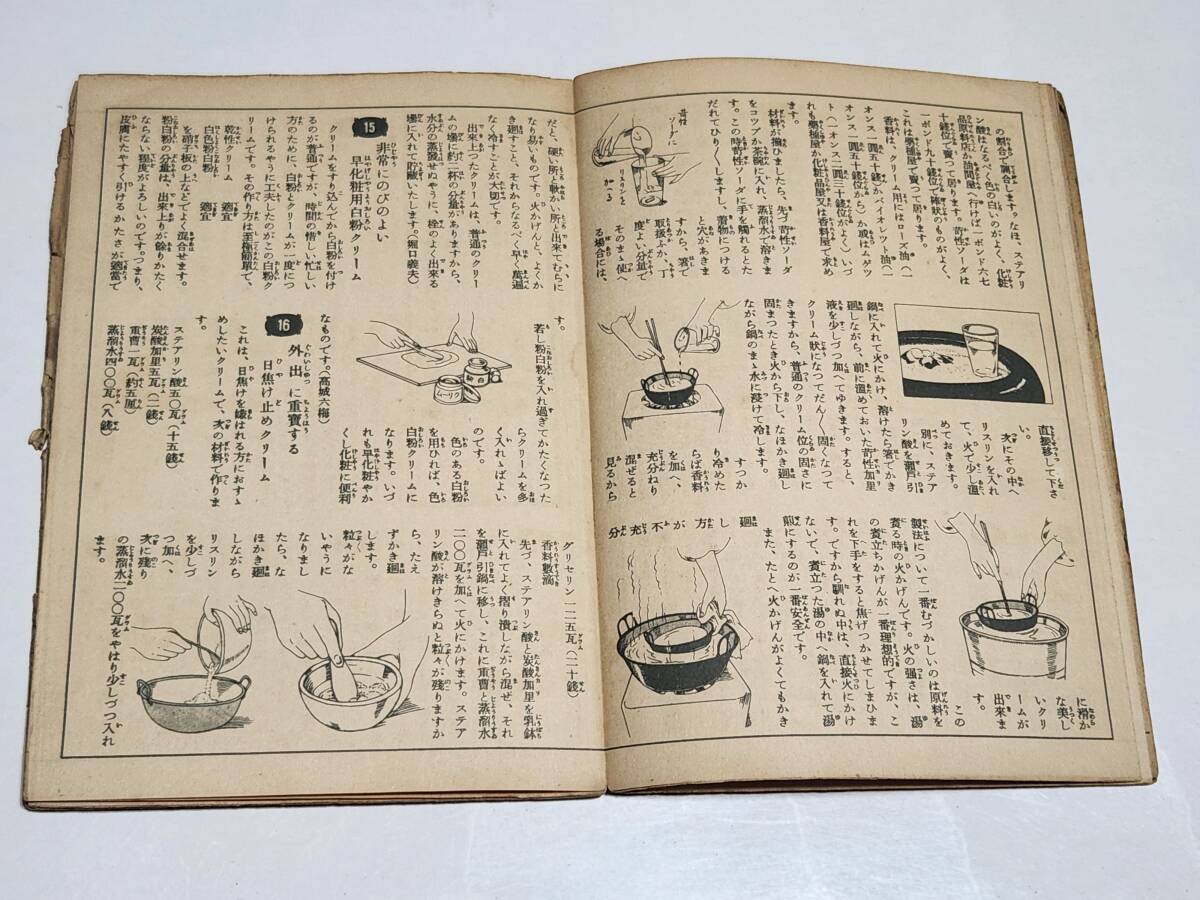 の割合で調合します。なほ、ステアリ
ン酸はなるべく色の白いのがよく、化粧
品原料店か油問屋へ行けば一ポンド六七
十錢位で賣つて居ります。苛性ソーダは
一ポンド九十錢位で棒狀のものがよく、
これは藥種屋で賣つて居ります。
香料は、クリーム用にはローズ油(一
オンス一圓五十錢)かバイオレツト油(一
オンス一圓五十錢位から)か或はムダツ
ト(一オンス二圓三十錢位がよく)いづ
れも藥種屋か化粧品屋又は香料屋で求め
ます。
材料が揃ひましたら、先づ苛性ソーダ
をコツプか茶碗に入れ、蒸溜水で溶きま
す。この時苛性ソーダに手を觸れるとた
だれてひり〱しますし、着物につける
と穴があきま
すから、箸で
取扱ふか、丁
度よい分量で
そのまゝ使へ
る場合には、
苛性
ソーダに
リスリンを
加へる
直接移して下さ
い。
次にその中へ
リスリンを入れ
て、火で少し溫
めておきます。
別に、ステア
リン酸を瀬戸引
鍋に入れて火にかけ、溶けたら箸でかき
廻しながら、前に溫めておいた苛性加里
液を少しづつ加へてゆきます。すると、
クリーム狀になつてだん〱固くなつて
きますから、普通のクリーム位の固さに
固まつたとき火から下し、なほかき廻し
ながら鍋のまゝ水に浸けて冷します。
すつか
り冷めた
らば香料
を加へ、
充分ねり
混ぜると
見るから
に滑か
な美し
いクリ
ームが
出來ま
す。
この
製法について一番むづかしいのは原料を
煮る時の火かげんです。火の強さは、湯
の煮立ちかげんが一番理想的ですが、こ
れを下手をすると焦げつかせてしまひま
す。ですから馴れぬ中は、直接火にかけ
ないで、煮立つた湯の中へ鍋を入れて湯
煎にするのが一番安全です。
また、たとへ火かげんがよくてもかき
廻し方が不充分
だと、硬い所と軟かい所と出來てむらに
なり易いものです。火かげんと、よくか
き廻すこと、それからなるべく早く萬遍
なく冷すことが大切です。
出來上つたクリームは、普通のクリー
ムの壜に約二杯の分量がありますから、
水分の蒸發せぬやうに、栓のよく出來る
壜に入れて貯藏いたします。(堀口義夫)
15
非常にのびのよい
早化粧用白粉クリーム
クリームをすり込んでから白粉を付け
るのが普通ですが、時間の惜しい忙しい
方のために、白粉とクリームが一度につ
けられるやうに工夫したのがこの白粉ク
リームです。その作り方は至極簡單で、
乾性クリーム 適宜
白色粉白粉 適宜
を硝子板の上などでよく混合せます。
粉白粉の分量は、出來上りが餘りかたく
ならない程度がよろしいのです。つまり、
皮膚にたやすく引けるかたさが適當で
す。
若し粉白粉を入れ過ぎてかたくなつた
らクリームを多
く入れゝばよい
のです。
色のある白粉
を用ひれば、色
白粉クリームに
なります。いづ
れも早化粧やか
くし化粧に便利
なものです。(高城六梅)
クリーム
粉白
16
外出に重寶する
日焦け止めクリーム
これは、日焦けを嫌はれる方におすゝ
めしたいクリームで、次の材料で作りま
す。
ステアリン酸五〇瓦(十五錢)
炭酸加里五瓦(二錢)
重曹一瓦(約五厘)
蒸溜水四〇〇瓦(八錢)
グリセリン一二五瓦(二十錢)
香料數滴
先づ、ステアリン酸と炭酸加里を乳鉢
に入れてよく摺り潰しながら混ぜ、それ
を瀬戸引鍋に移し、これに重曹と蒸溜水
二〇〇瓦を加へて火にかけます。ステア
リン酸が溶けきらぬと粒々が殘りますか
ら、たえ
ずかき廻
します。
粒々がな
いやうに
なりまし
たら、な
ほかき廻
しながら
リスリン
を少しづ
つ加へ、
次に殘り
の蒸溜水二〇〇瓦をやはり少しづつ入れ
ます。